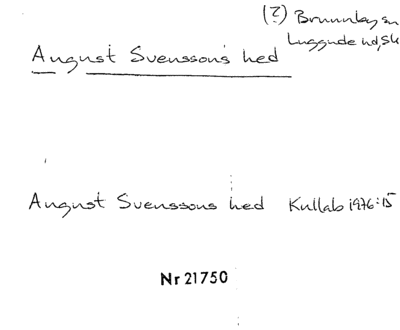 (?) Brunnby sn
Luggude hd, Sk
August Svensson's hed
August Svenssons hed Kullab 1976:15
Nr 21750